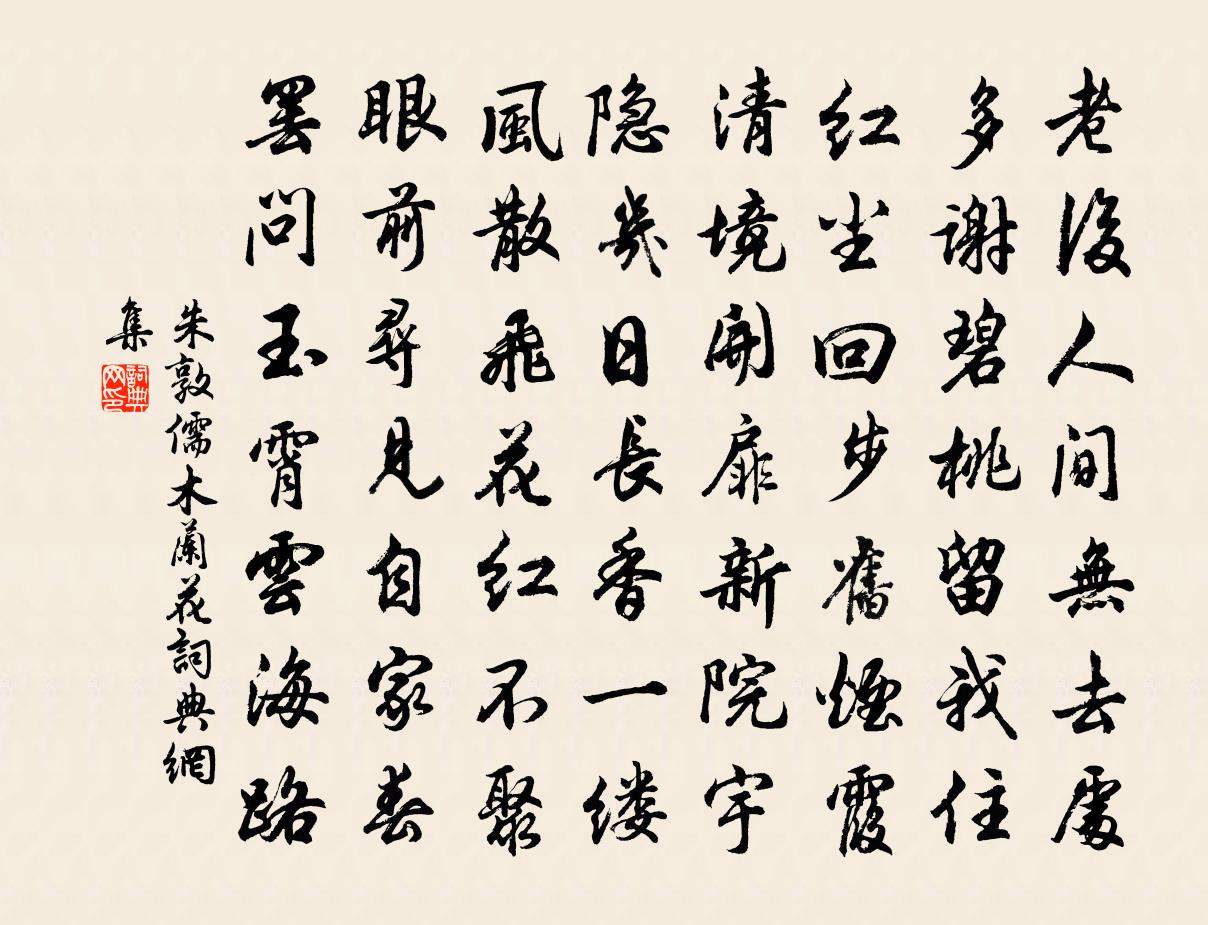 老後人间無去處
多谢碧桃留我住
红尘回步舊煙霞
清境開扉新院宇
隐幾日長香一缕
風散飛花红不聚
眼前尋見自家春
罢问玉霄雲海路
朱敦儒木蘭花詞典網
集
詞典网印